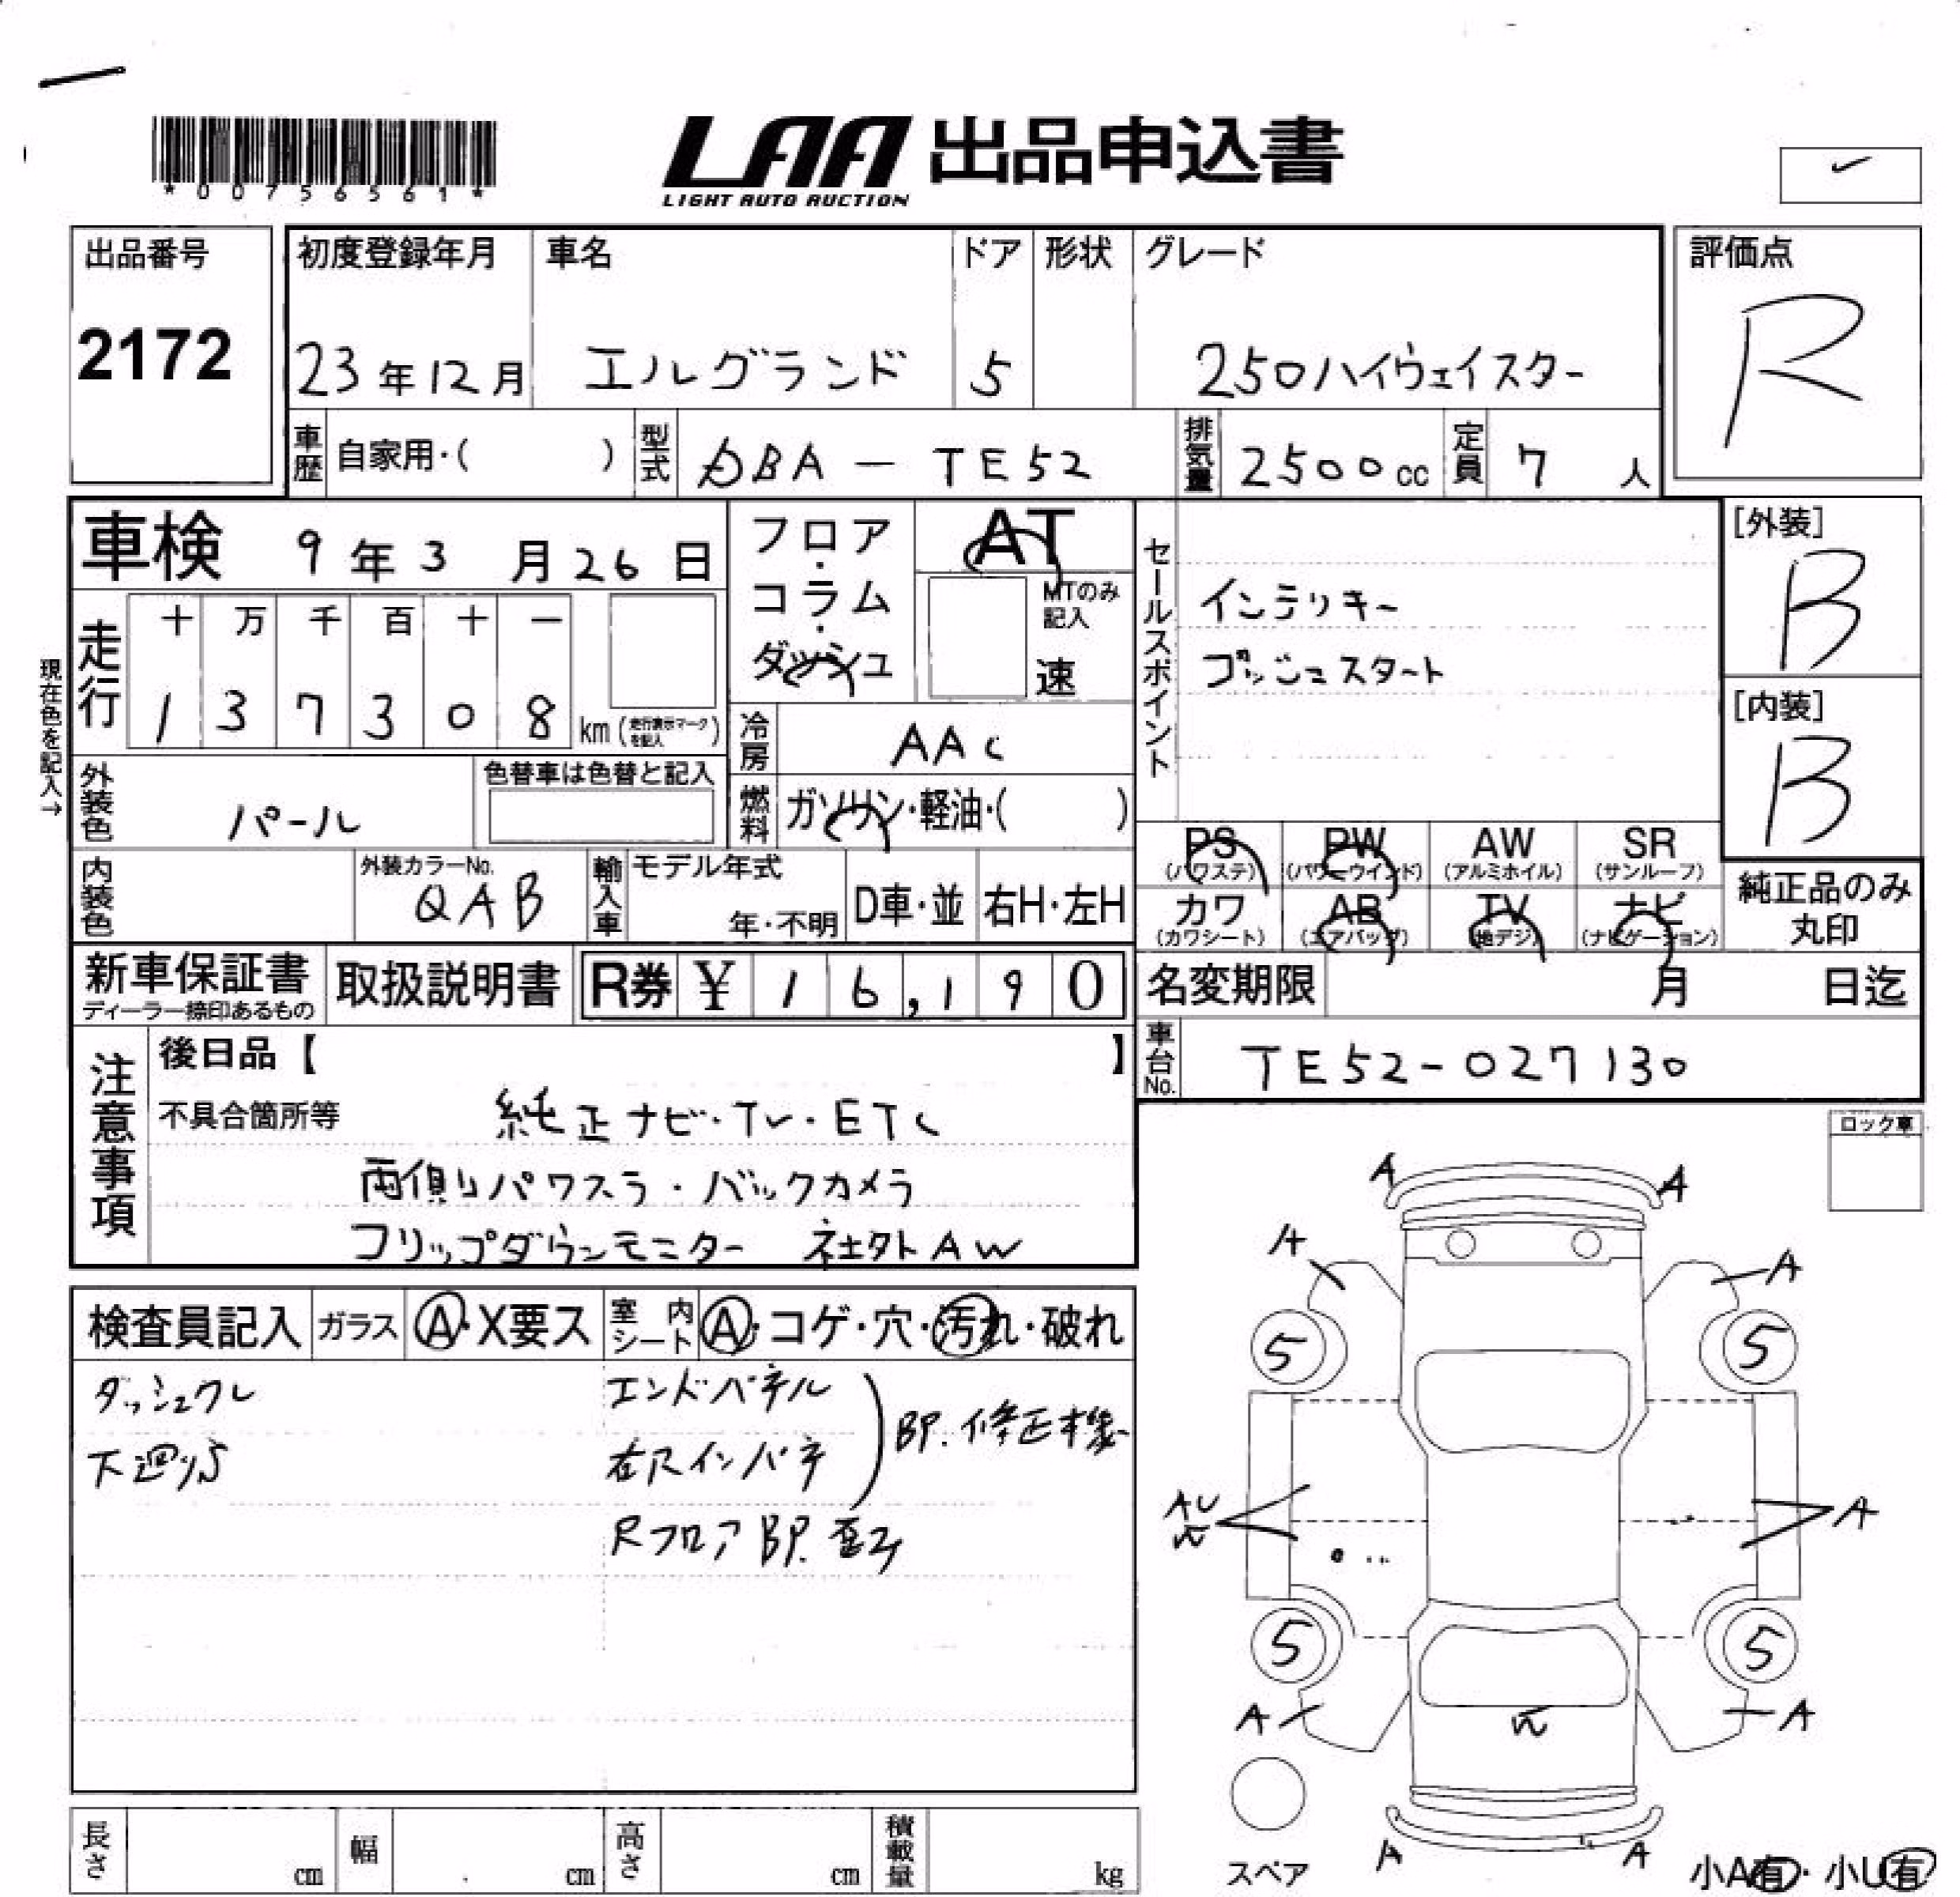 *00756561*
LAA 出品申込書
LIGHT AUTO AUCTION
出品番号
2172
初度登録年月
23年12月
車名
エルグランド
ドア
5
形状
グレード
250ハイウェイスター
評価点
R
車歴
自家用・( )
型式
DBA - TE52
排気量
2500cc
定員
7 人
車検 9年3月26日
フロア・コラム・ダッシュ
AT
MTのみ記入
速
セールスポイント
インテリキー
プッシュスタート
[外装]
B
[内装]
B
現在色を記入→
走行
十 万 千 百 十 一
1 3 7 3 0 8 km (走行表示マークを記入)
冷房
AAC
外装色
パール
色替車は色替と記入
燃料
ガソリン・軽油・( )
PS (パワステ)
PW (パワーウインド)
AW (アルミホイル)
SR (サンルーフ)
内装色
外装カラーNo.
QAB
輸入車
モデル年式
年・不明
D車・並
右H・左H
カワ (カワシート)
AB (エアバッグ)
TV (地デジ)
ナビ (ナビゲーション)
純正品のみ丸印
新車保証書
ディーラー捺印あるもの
取扱説明書
R券 ¥ 16,190
名変期限 月 日迄
車台No.
TE52-027130
注意事項
後日品【 】
不具合箇所等
純正ナビ・TV・ETC
両側パワスラ・バックカメラ
フリップダウンモニター 社外AW
ロック車
検査員記入
ガラス
A・X要ス
室内シート
A・コゲ・穴・汚れ・破れ
ダッシュクレ
下廻りS
エンドパネル
右Rインパネ
BP.修正機
RフロアBP.歪み
A A
A A
5 5
AU
W
A
5 5
A A
W
スペア
A A
小A有・小U有
長さ cm
幅 cm
高さ cm
積載量 kg